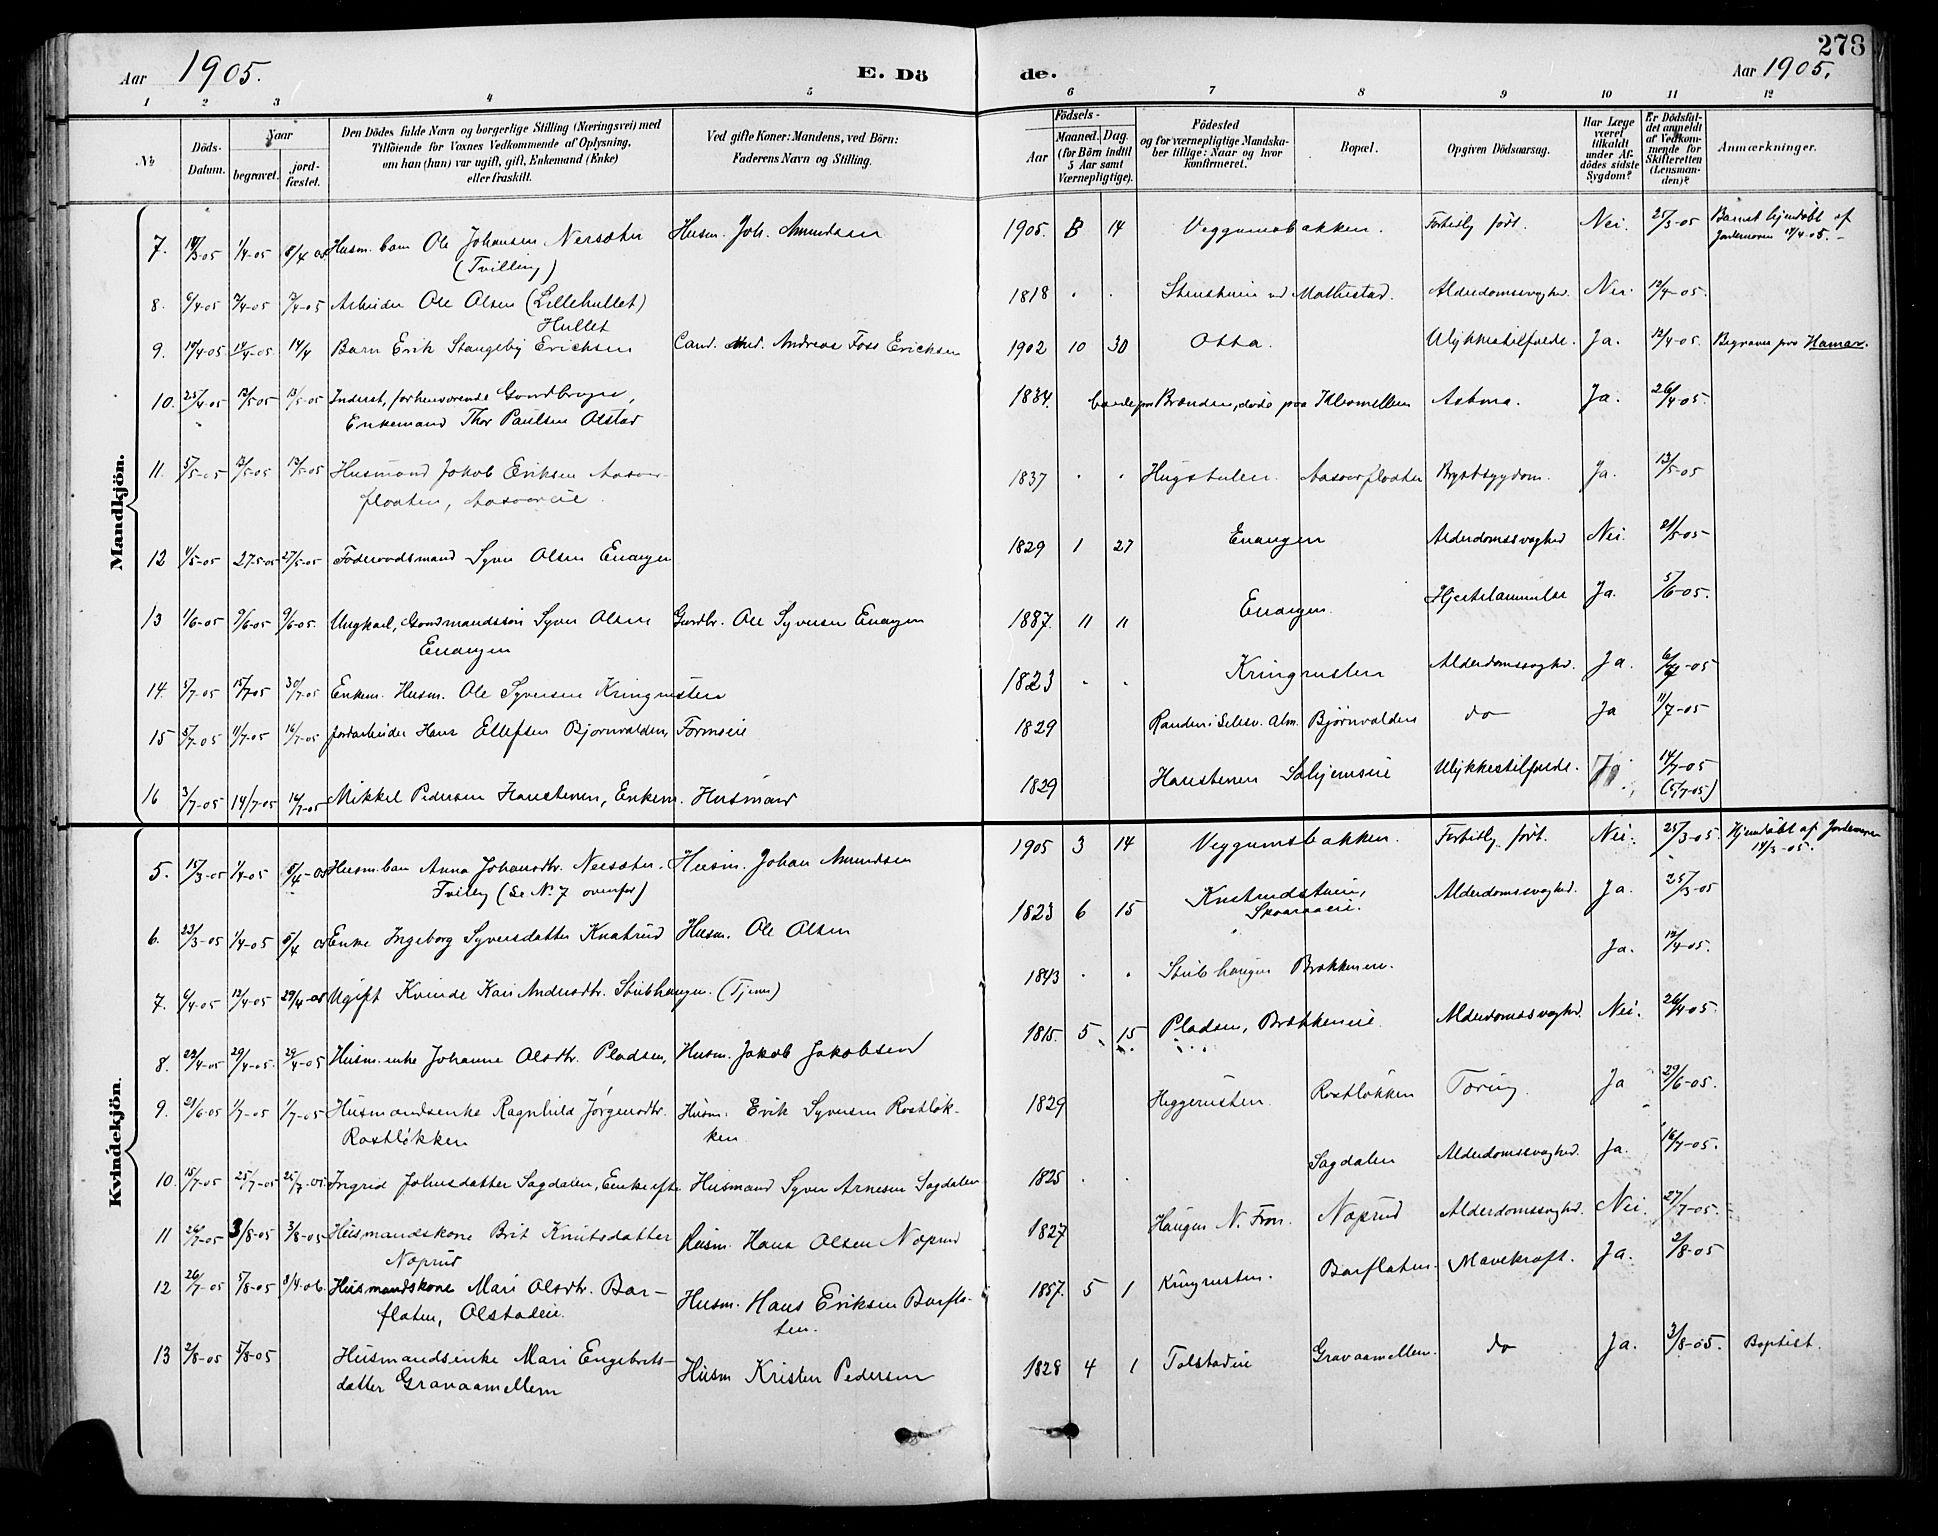 278
Aar 1905.
E. Dö
de.
Aar 1905.
1 2 3 4 5 6 7 8 9 10 11 12
No
Döds-Datum.
Naar
begravet.
jord-fæstet.
Den Dödes fulde Navn og borgerlige Stilling (Næringsvei) med
Tilföiende for Voxnes Vedkommende af Oplysning,
om han (hun) var ugift, gift, Enkemand (Enke)
eller fraskilt.
Ved gifte Koner: Mandens, ved Börn:
Faderens Navn og Stilling.
Födsels-
Aar
Maaned. Dag.
(for Börn indtil
5 Aar samt
Værnepligtige).
Födested
og for værnepligtige Mandska-
ber tillige: Naar og hvor
konfirmeret.
Bopæl.
Opgiven Dödsaarsag.
Har Læge
været
tilkaldt
under Af-
dödes sidste
Sygdom?
Er Dödsfal-
det anmeldt
af Vedkom-
mende for
Skifteretten
(Lensman-
den)?
Anmærkninger.
Mandkjön.
7. 14/3-05 1/4-05 8/4 05 Husm. barn Ole Johansen Nersæter Husm. Joh. Amundsen 1905 3 14 Veggumsbakken. Fortidlig født. Nei. 25/3-05 Barnet hjemdøbt af
(Tvilling) Jordmoren 14/4-05.
8. 6/4-05 7/4-05 7/4-05 Arbeider Ole Olsen (Lillehullet) 1818 . . Stenstuen ved Mathustad. Alderdomssvaghed. Nei. 12/4-05.
Hullet
9. 10/4-05 14/4-05 14/4 Barn Erik Stangeby Erichsen Cand. med. Andreas Foss Erichsen 1902 10 30 Otta. Ulykkestilfælde. Ja. 12/4-05. Begraves paa Hamar.
10. 25/4-05 13/5-05 13/5-05 Inderst, forhenværende Gaardbruger, 1834. Brænden, døde paa Kleivmellem Astma. Ja. 26/4-05.
Enkemand Thor Paulsen Olstad
11. 5/5-05 13/5-05 13/5-05 Husmand Jakob Eriksen Aasaar-
flaaten, Aasaareie. 1837 " " Hugstulen. Aasoarflaaten Brystsygdom. Ja. 13/5-05
12 1/5-05 27-5-05 27/5-05 Føderaadsmand Syver Olsen Enangen 1829 1 27 Enangen Alderdomssvaghed Nei. 21/5-05
13 1/6-05 9/6-05 9/6-05. Ungkarl, Gaardmandssøn Syver Olsen Gaardbr. Ole Syversen Enangen 1887. 11 11 Enangen. Hjertelammelse Ja. 5/6-05.
Enangen
14. 5/7-05 15/7-05 30/7-05 Enkem. Husm. Ole Syversen Kringrusten 1823 . . Kringrusten Alderdomssvaghed. Ja. 6/7-05
15 5/7-05 11/7-05 16/7-05 Jordarbeider Hans Ellefsen Bjørnvolden, Formoeie 1829 Randen i Selsv. Alm. Bjørnvolden do Ja 11/7-05
16 3/7-05 14/7-05 16/7-05 Mikkel Pedersen Haustenen, Enkem. Husmand 1829 Haustenen Solhjemseie Ulykkestilfælde. Ja. 14/7-05
(5/7-05)
Kvindekjön.
5. 15/3-05 1/4-05 8/4-05 Husm. barn Anna Johansdtr. Nersæter. Husm. Johan Amundsen 1905 3 14 Veggumsbakken. Fortidlig født. Nei. 25/3-05. Hjemdøbt af Jordemoren
Tvilling (Se N. 7 ovenfor) 14/3-05.
6. 23/3-05 1/4-05 8/4 05 Enke Ingeborg Syversdatter Knatrud Husm. Ole Olsen 1823 6 15 Knatrudstuen,
Skaaraaeie. Alderdomssvaghed. Ja. 25/3-05
7. 6/4-05 12/4-05 29/4-05 Ugift Kvinde Kari Andersdtr. Stubhaugen. (Tjener) 1843 . . Stubhaugen Brækkeneie. Ja. 12/4-05.
8. 22/4-05 29/4-05. 29/4-05 Husm. enke Johanne Olsdtr. Pladsen, Husm. Jakob Jakobsen 1815. 5 15 Pladsen, Brækkeneie. Alderdomssvaghed. Nei. 26/4-05.
9. 21/6-05 1/7-05 1/7-05 Husmandsenke Ragnhild Jørgensdtr. Husm. Erik Syversen Rostløk- 1829 Heggerusten. Rostløkken Tæring. Ja 29/6-05.
Rostløkken ken
10. 15/7-05 25/7-05 25/7-05 Ingrid Johnsdatter Sagdalen, Enke efter Husmand Syver Arnesen Sagdalen 1825 . . Sagdalen Alderdomssvaghed. Ja. 16/7-05.
11 26/7-05 3/8-05 3/8-05 Husmandskone Brit Knutsdatter Husm. Hans Olsen Noprud 1827 Haugen N. Fron. Noprud Alderdomssvaghed. Nei. 27/7-05.
Noprud
12 26/7-05 5/8-05 8/4-06. Husmandskone Mari Olsdtr. Bar- Husm. Hans Eriksen Barfla- 1857. 5 1 Kringrusten. Barflaten. Mavekræft. Ja. 2/8-05
flaten, Olstadeie. ten.
13 2/8-05 5/8-05 Husmandsenke Mari Engebrets- Husm Kristen Pedersen 1828 4 1 Tolstadeie Gravaamellem. do Ja. 3/8-05. Baptist.
datter Gravaamellem